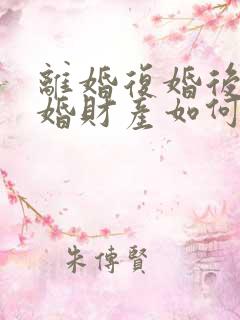 離婚復婚後
婚財產如何
朱傳賢